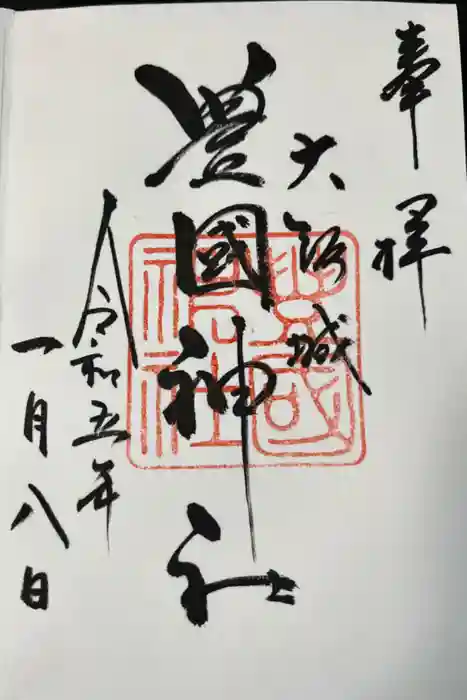 奉拝
大阪城
豊國神社
令和五年
一月八日
豊國神社